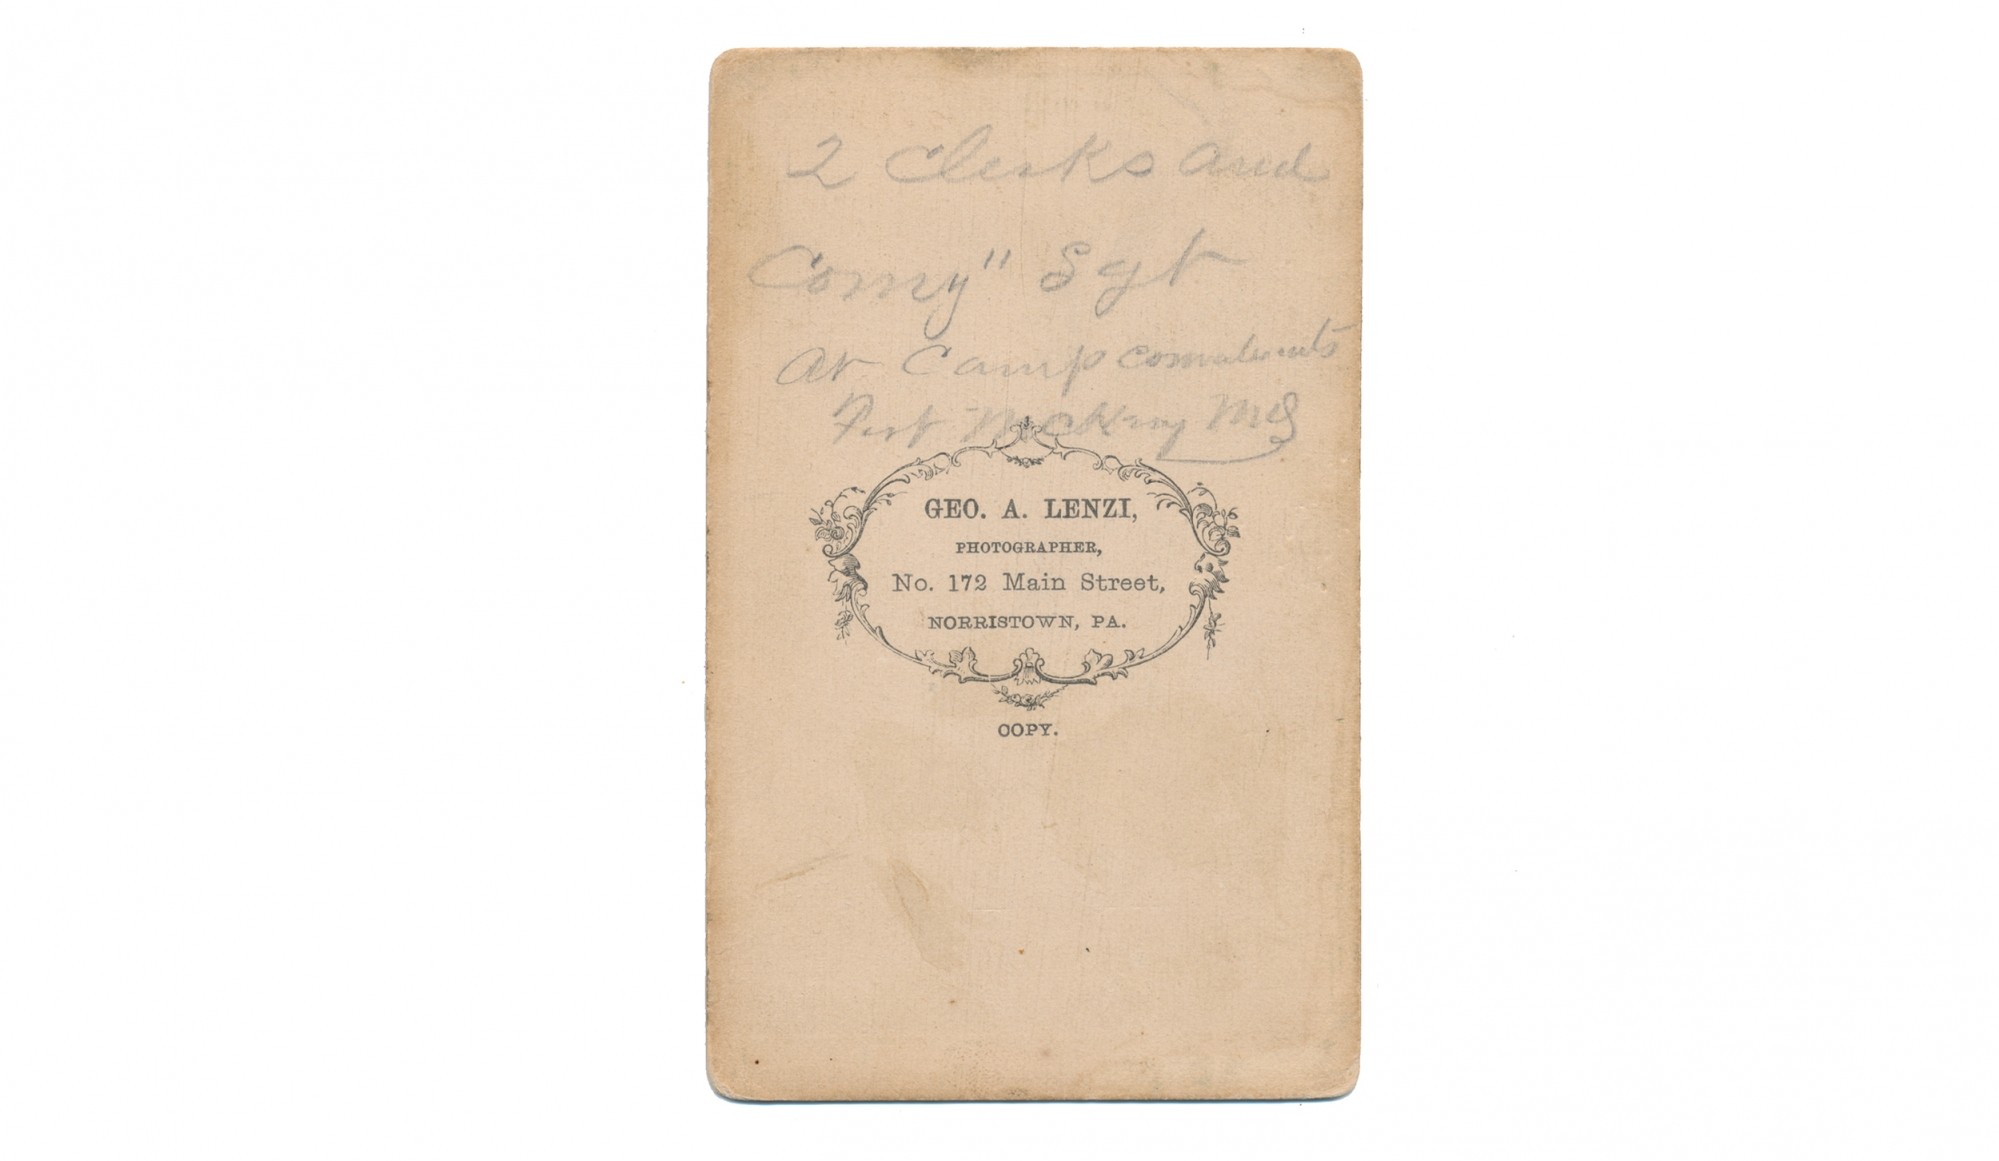 2 Clerks and
Comy" Sgt
At Camp
Fort McHenry Md
GEO. A. LENZI,
PHOTOGRAPHER,
No. 172 Main Street,
NORRISTOWN, PA.
COPY.